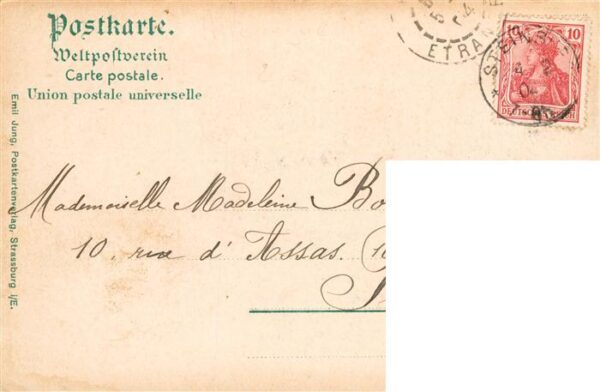 Postkarte.
Weltpostverein
Carte postale.
Union postale universelle
Emil Jung, Postkartenverlag, Strassburg i/E.
ETRAN
10
DEUTSCHES REICH
Mademoiselle Madeleine Bo
10, rue d' Assas. 10